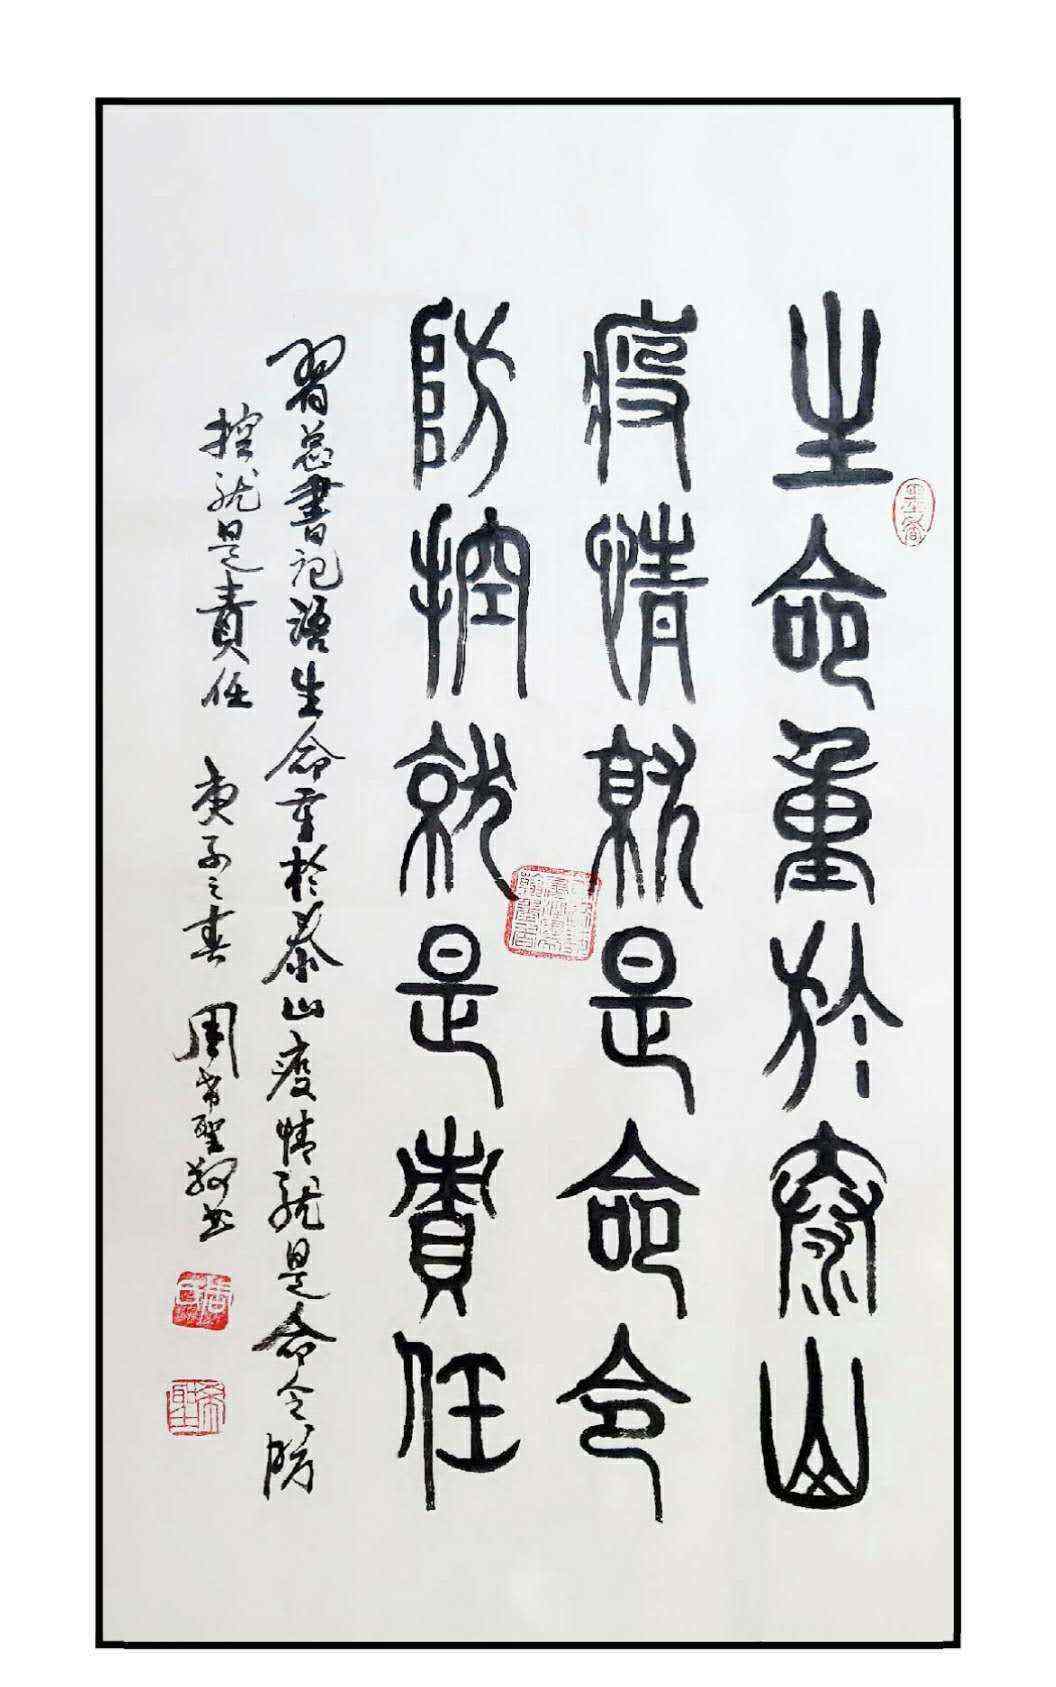 生命重於泰山
疫情就是命令
防控就是責任
習总書记語生命重於泰山疫情就是命令防
控就是責任 庚子之春 周希聖敬书